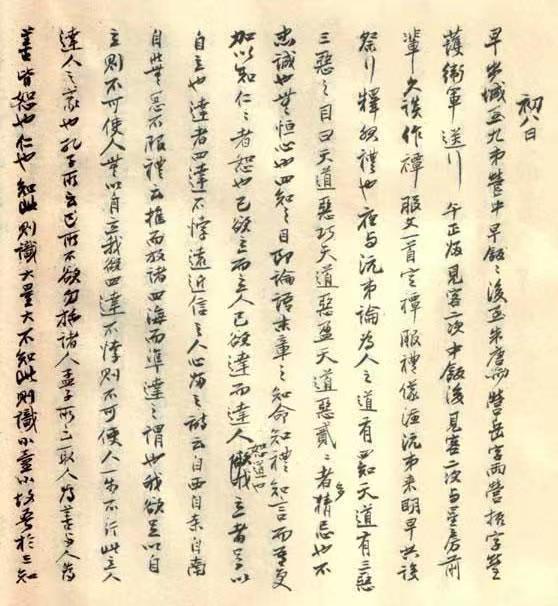 初八日
早出城至九弟營中早飯々後至朱唐兩營岳字兩營振字營
護衛軍送行午正歸見客二次中飯後見客二次与星房前
輩久談作禫服文一首定禫服禮儀沅弟來明早共設
祭行釋服禮也夜与沅弟論為人之道有四知天道有三惡
三惡之目曰天道惡巧天道惡盈天道惡貳々者多猜忌也不
忠誠也無恒心也四知之目即論語末章之知命知禮知言而吾更
加以知仁々者恕也己欲立而立人己欲達而達人恕道也立者足以
自立也達者四達不悖遠近信之人心歸之詩云自西自東自南
自北無思不服禮云推而放諸四海而準達之謂也我欲足以自
立則不可使人無以自立我欲四達不悖則不可使人一步不行此立人
達人之義也孔子所云己所不欲勿施諸人孟子所云取人為善与人為
善皆恕也仁也知此則識大量大不知此則識小量小故吾於三知